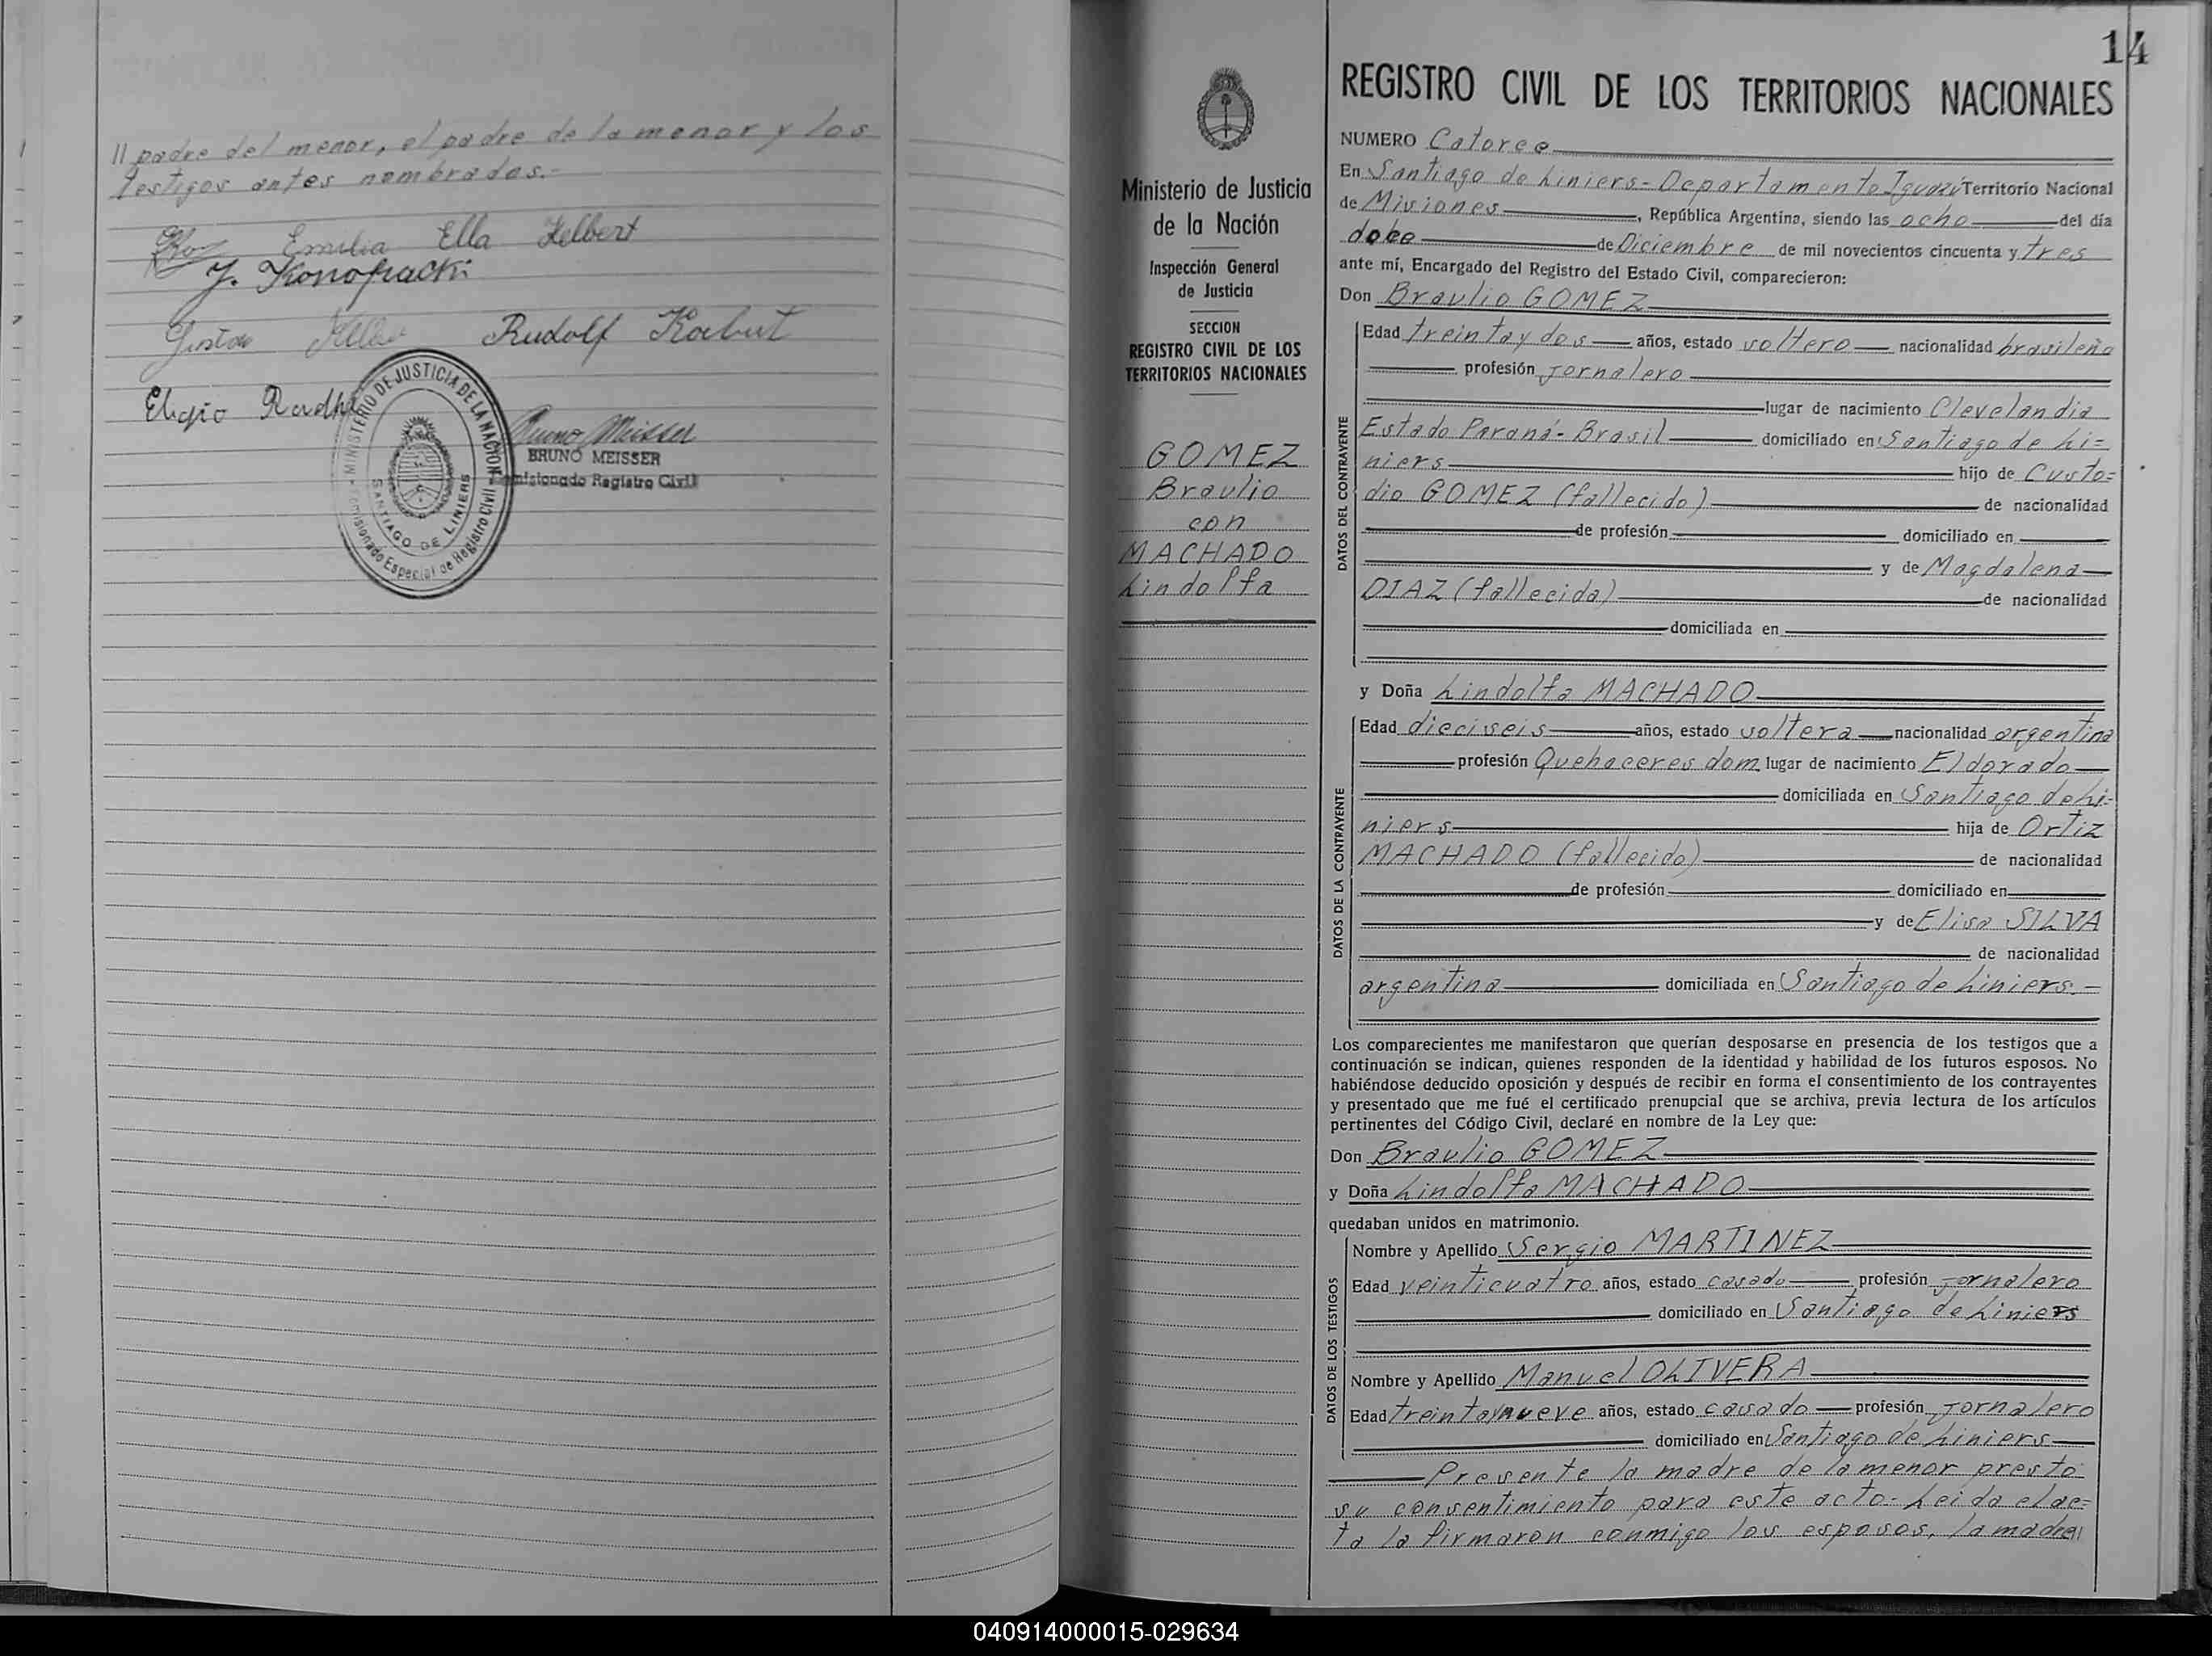 // padre del menor, el padre de la menor y los
testigos antes nombrados.-
Emilia Ella Helbert
J. Konopacki
Gustav Rudolf Korbut
Eligio
MINISTERIO DE JUSTICIA DE LA NACION
SANTIAGO DE LINIERS
Comisionado Especial de Registro Civil
Bruno Meisser
BRUNO MEISSER
Comisionado Registro Civil
14
Ministerio de Justicia
de la Nación
Inspección General
de Justicia
SECCION
REGISTRO CIVIL DE LOS
TERRITORIOS NACIONALES
GOMEZ
Braulio
con
MACHADO
Lindolfa
REGISTRO CIVIL DE LOS TERRITORIOS NACIONALES
NUMERO Catorce
En Santiago de Liniers-Departamento Iguazú Territorio Nacional
de Misiones, República Argentina, siendo las ocho del día
doce de Diciembre de mil novecientos cincuenta y tres
ante mí, Encargado del Registro del Estado Civil, comparecieron:
Don Braulio GOMEZ
DATOS DEL CONTRAYENTE
Edad treinta y dos años, estado soltero nacionalidad brasileña
profesión Jornalero
lugar de nacimiento Clevelandia
Estado Paraná-Brasil domiciliado en Santiago de Li=
niers hijo de Custo=
dio GOMEZ (fallecido) de nacionalidad
de profesión domiciliado en
y de Magdalena
DIAZ (fallecida) de nacionalidad
domiciliada en
y Doña Lindolfa MACHADO
DATOS DE LA CONTRAYENTE
Edad dieciseis años, estado soltera nacionalidad argentina
profesión Quehaceres dom. lugar de nacimiento Eldorado
domiciliada en Santiago de Li=
niers hija de Ortiz
MACHADO (fallecido) de nacionalidad
de profesión domiciliado en
y de Elisa SILVA
de nacionalidad
argentina domiciliada en Santiago de Liniers.-
Los comparecientes me manifestaron que querían desposarse en presencia de los testigos que a
continuación se indican, quienes responden de la identidad y habilidad de los futuros esposos. No
habiéndose deducido oposición y después de recibir en forma el consentimiento de los contrayentes
y presentado que me fué el certificado prenupcial que se archiva, previa lectura de los artículos
pertinentes del Código Civil, declaré en nombre de la Ley que:
Don Braulio GOMEZ
y Doña Lindolfa MACHADO
quedaban unidos en matrimonio.
DATOS DE LOS TESTIGOS
Nombre y Apellido Sergio MARTINEZ
Edad veinticuatro años, estado casado profesión Jornalero
domiciliado en Santiago de Liniers
Nombre y Apellido Manuel OLIVERA
Edad treintaynueve años, estado casado profesión Jornalero
domiciliado en Santiago de Liniers
Presente la madre de la menor prestó
su consentimiento para este acto.- Leida el ac=
ta la firmaron conmigo los esposos, la madre//
040914000015-029634